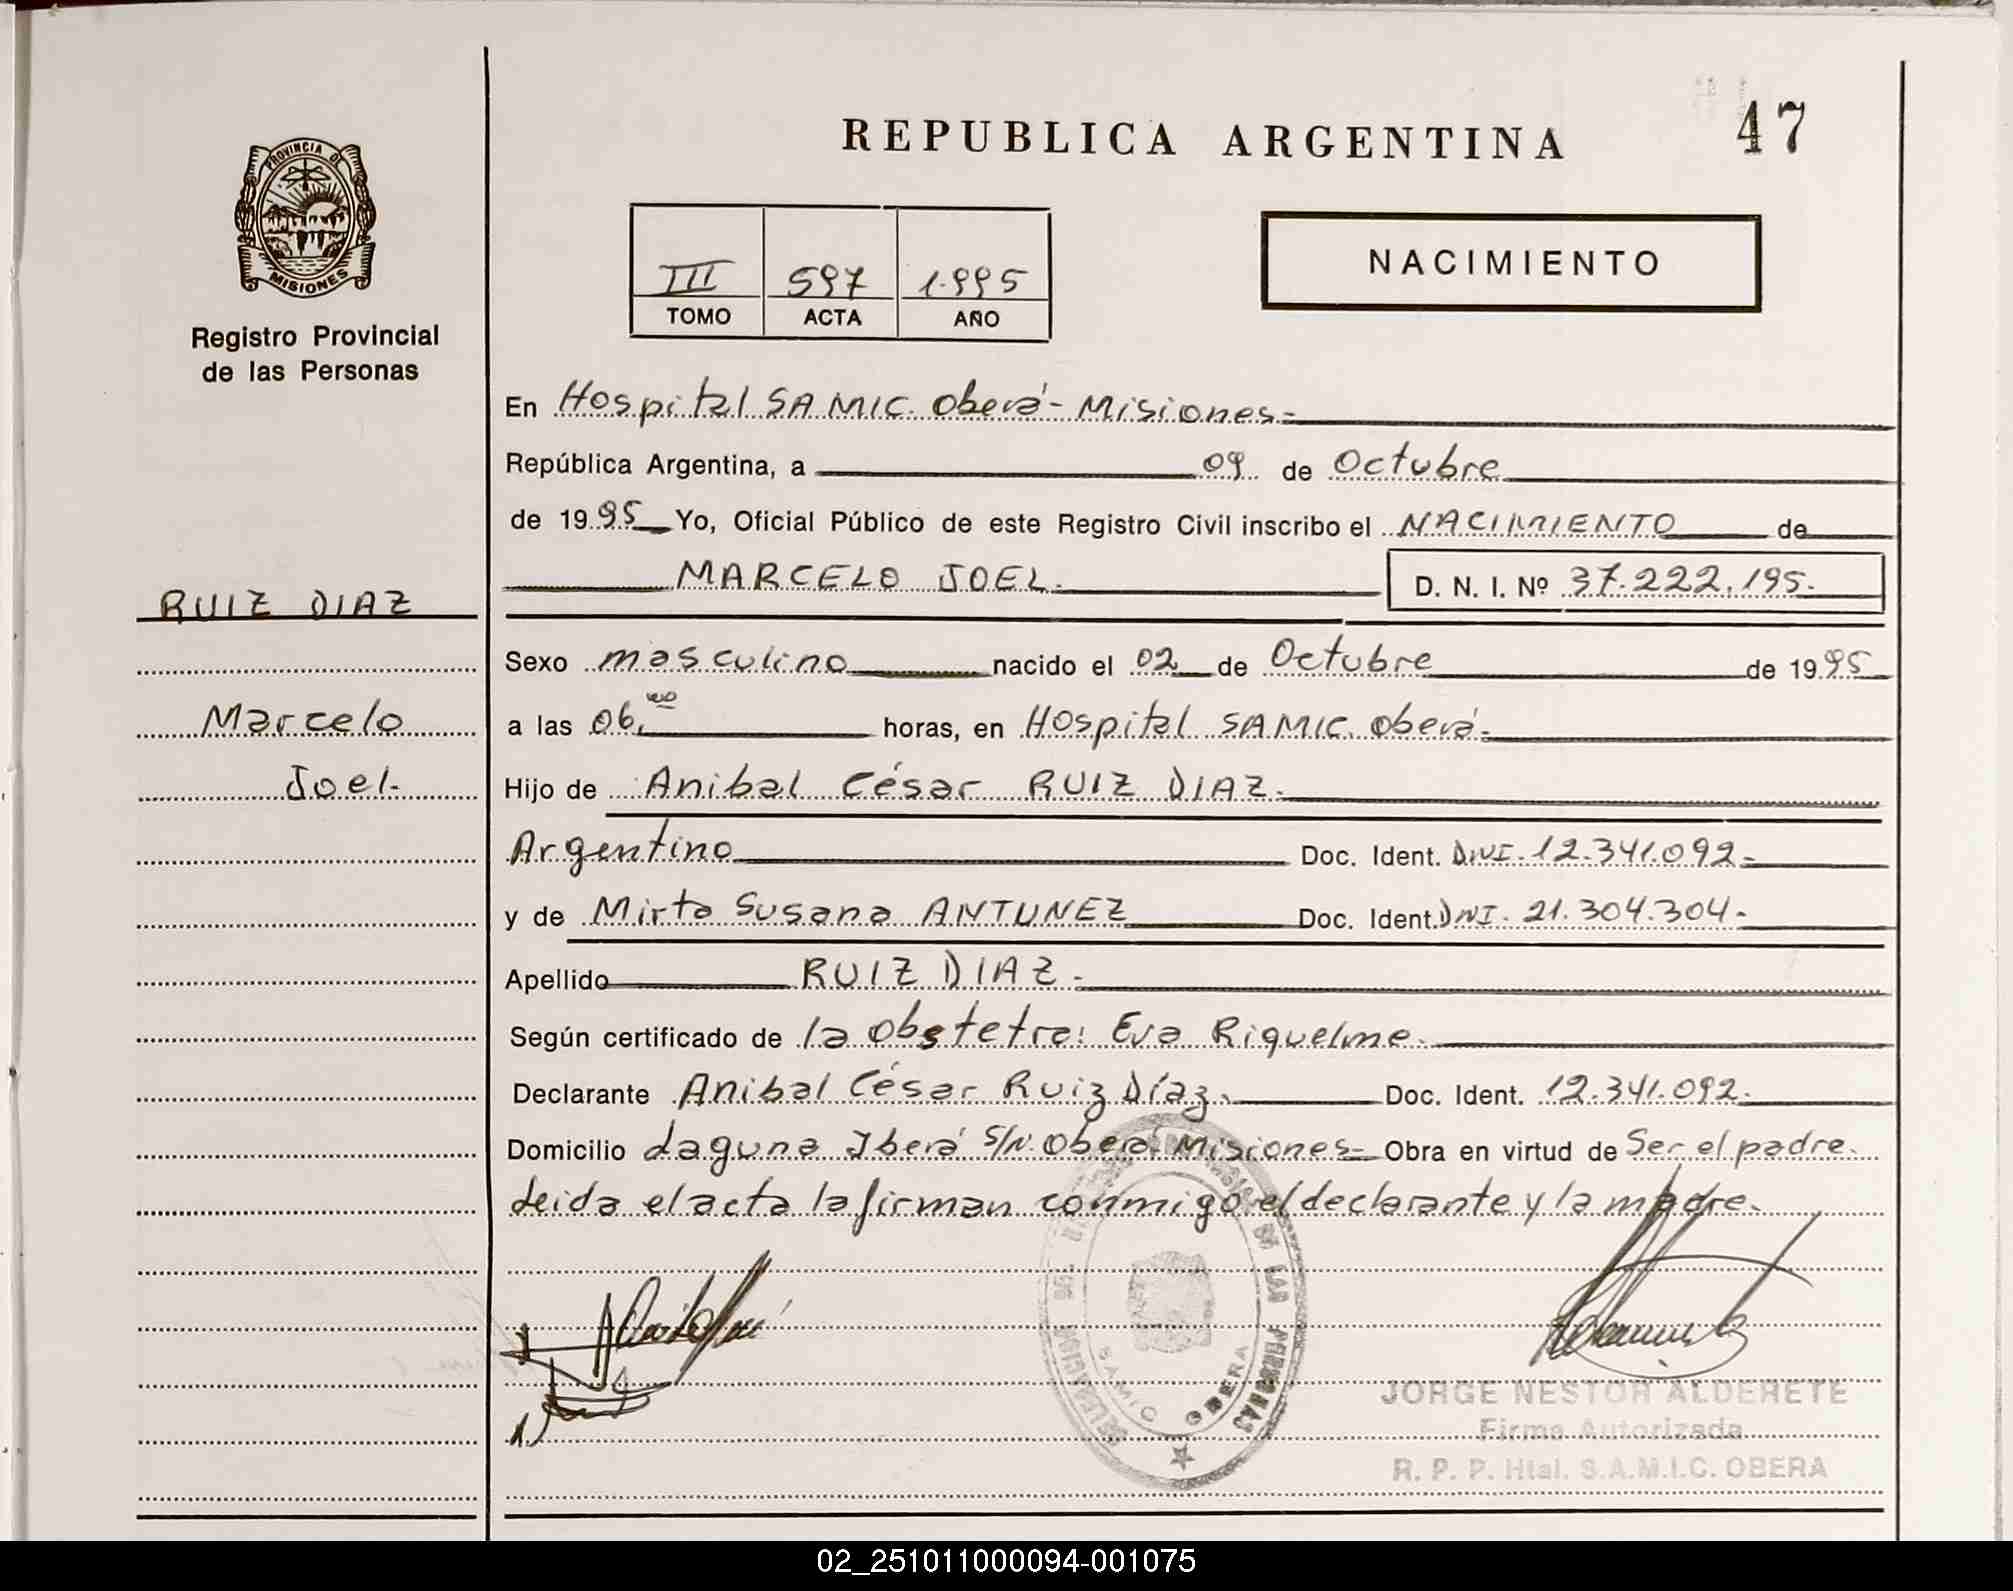 REPUBLICA ARGENTINA
47
PROVINCIA DE
MISIONES
Registro Provincial
de las Personas
III 597 1.995
TOMO ACTA AÑO
NACIMIENTO
En Hospital SAMIC. Oberá - Misiones=
República Argentina, a 09 de Octubre
de 1995 Yo, Oficial Público de este Registro Civil inscribo el NACIMIENTO de
MARCELO JOEL. D. N. I. Nº 37.222.195.
RUIZ DIAZ
Marcelo
Joel.
Sexo masculino nacido el 02 de Octubre de 1995
a las 06,00 horas, en Hospital SAMIC. Oberá.
Hijo de Anibal César RUIZ DIAZ.
Argentino Doc. Ident. DNI. 12.341.092=
y de Mirta Susana ANTUNEZ Doc. Ident. DNI. 21.304.304.
Apellido RUIZ DIAZ.
Según certificado de la Obstetra: Eva Riquelme.
Declarante Anibal César Ruiz Díaz. Doc. Ident. 12.341.092.
Domicilio Laguna Iberá S/N. Oberá Misiones= Obra en virtud de Ser el padre.
Leida el acta la firman conmigo el declarante y la madre.
DE LAS PERSONAS
SAMIC OBERA
JORGE NESTOR ALDERETE
Firma Autorizada
R. P. P. Htal. S.A.M.I.C. OBERA
02_251011000094-001075